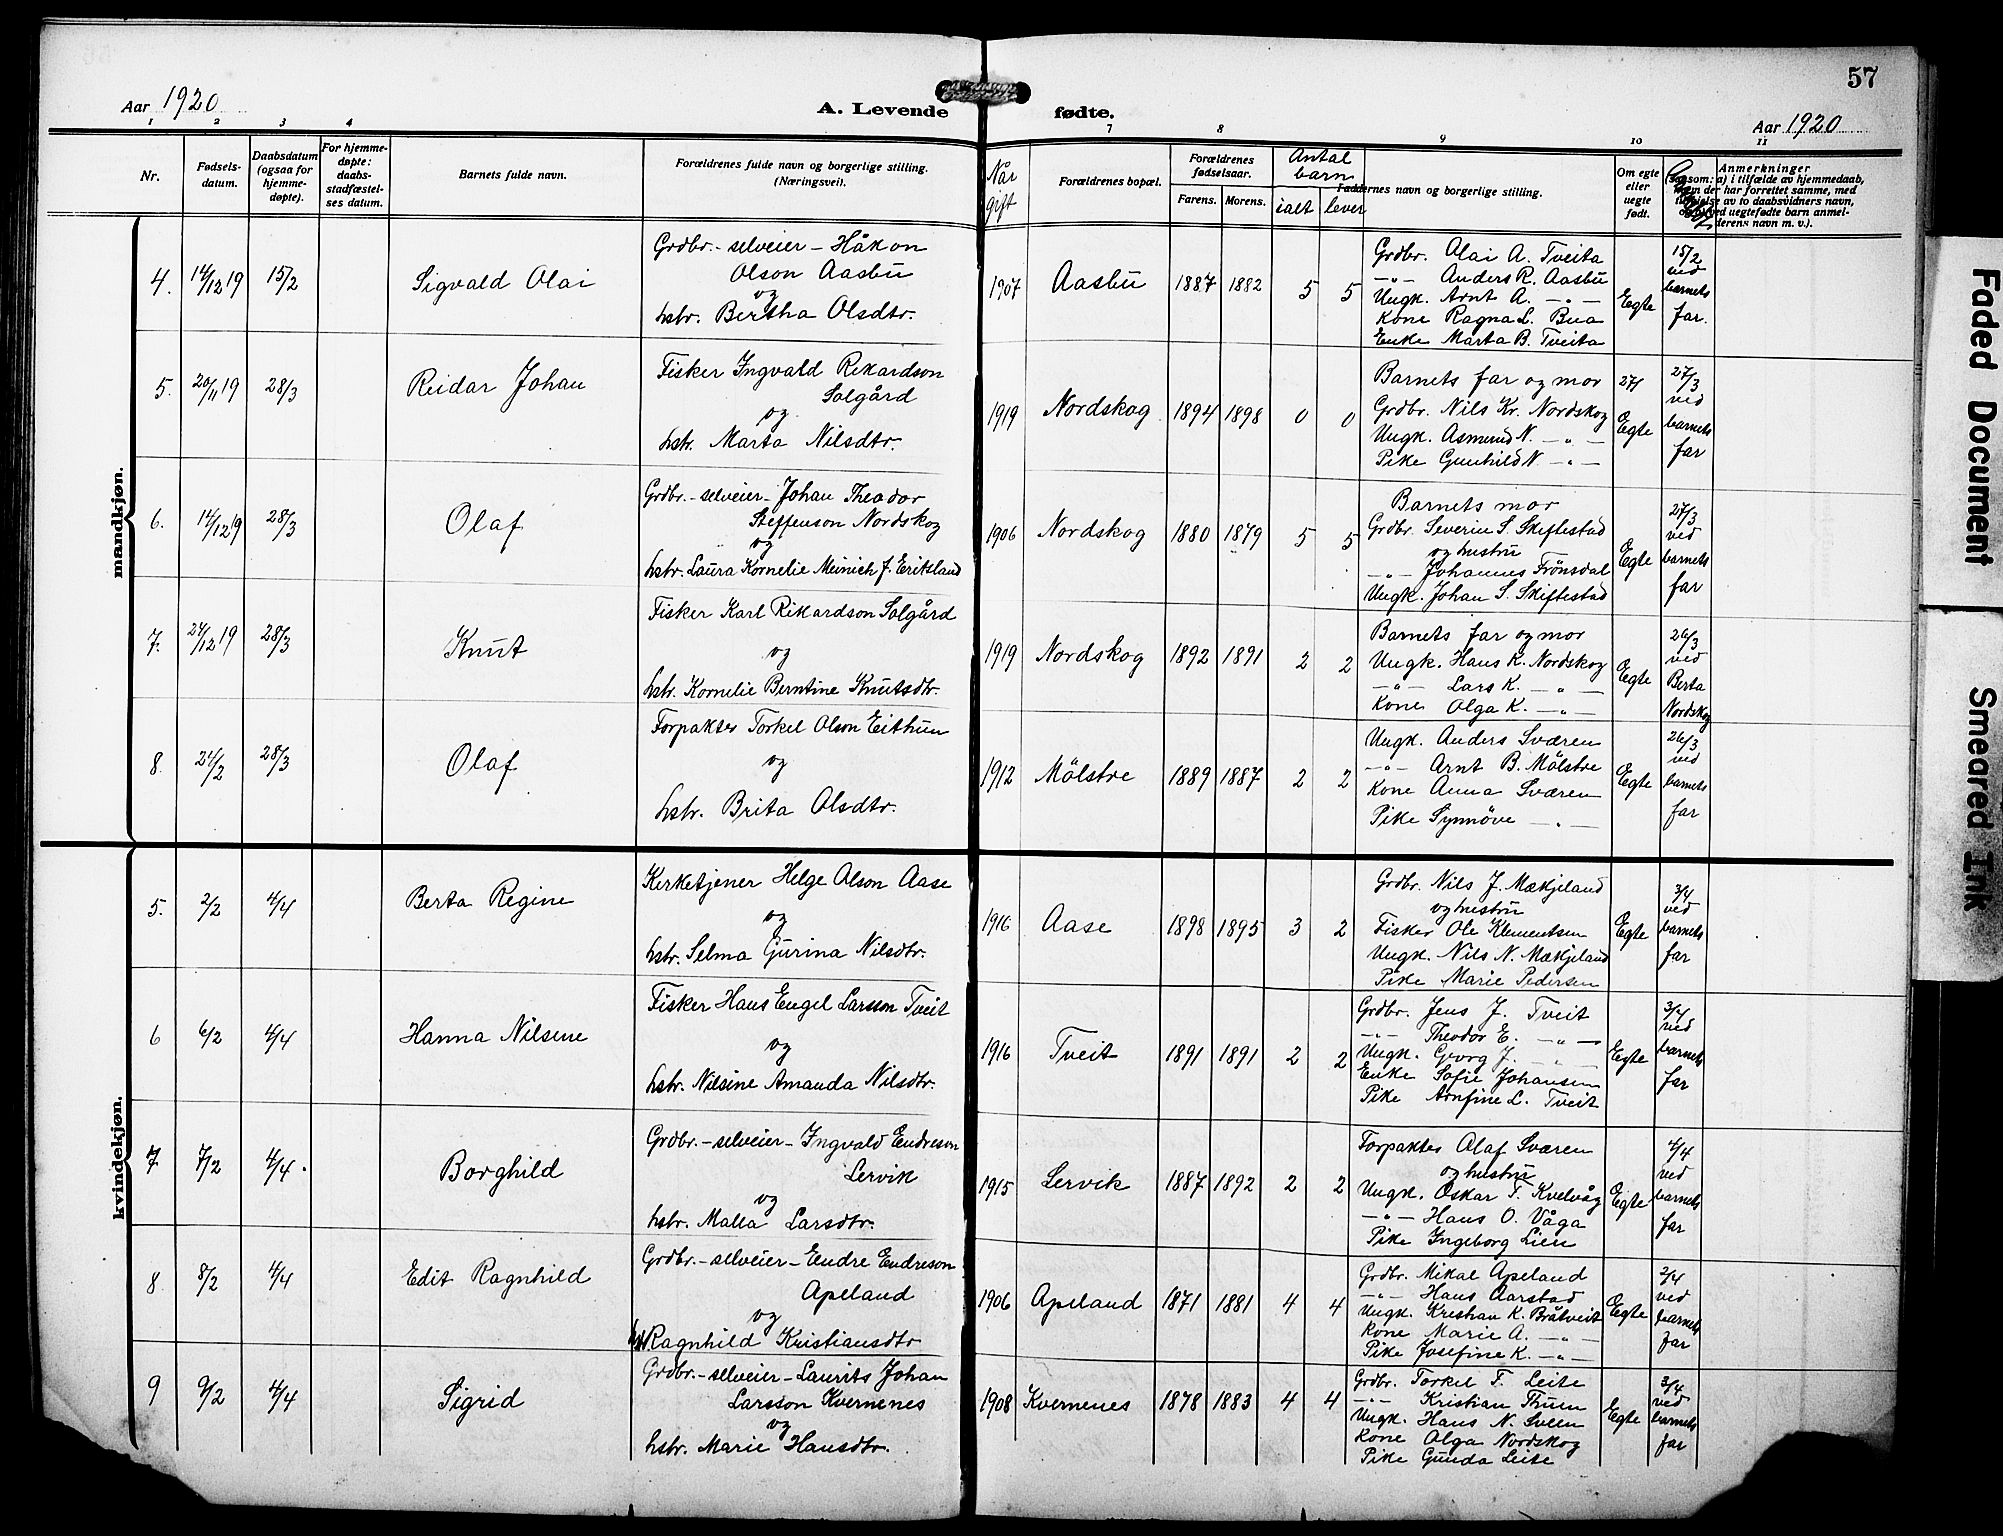 57
Aar 1920
A. Levende fødte.
Aar 1920
1 2 3 4 7 8 9 10 11
Nr.
Fødsels-
datum.
Daabsdatum
(ogsaa for
hjemme-
døpte).
For hjemme-
døpte:
daabs-
stadfæstel-
ses datum.
Barnets fulde navn.
Forældrenes fulde navn og borgerlige stilling.
(Næringsvei).
Når
gift
Forældrenes bopæl.
Forældrenes
fødselsaar.
Farens. Morens.
Antal
barn
ialt lever
Faddernes navn og borgerlige stilling.
Om egte
eller
uegte
født.
Anmerkninger
(saasom: a) i tilfælde av hjemmedaab,
navn der har forrettet samme, med
tilføielse av to daabsvidners navn,
og ved uegtefødte barn anmel-
derens navn m. v.).
mandkjøn.
4. 14/12 19 15/2 Sigvald Olai
Grdbr.-selveier- Håkon
Olson Aasbu
og
hstr. Bertha Olsdtr.
1907 Aasbu 1887 1882 5 5
Grdbr. Olai A. Tveita
-"- Anders R. Aasbu
Ungk. Arnt A. -"-
Kone Ragna L. Bua
Enke Marta B. Tveita
Egte
15/2
ved
barnets
far.
5. 20/11 19 28/3 Reidar Johan
Fisker Ingvald Rikardson
Solgård
og
hstr. Marta Nilsdtr.
1919 Nordskog 1894 1898 0 0
Barnets far og mor
Grdbr. Nils Kr. Nordskog
Ungk. Asmund N. -"-
Pike Gunhild N. -"-
27/
Egte
27/3
ved
barnets
far
6. 14/12 19 28/3 Olaf
Grdbr.-selveier- Johan Theodor
Steffenson Nordskog
og
hstr. Laura Kornelie Meinich f. Eriksland
1906 Nordskog 1880 1879 5 5
Barnets mor
Grdbr. Severin S. Skiftestad
og hustru
-"- Johannes Frønsdal
Ungk. Johan S. Skiftestad
Egte
27/3
ved
barnets
far
7. 24/12 19 28/3 Knut
Fisker Karl Rikardson Solgård
og
hstr. Kornelie Berntine Knutsdtr.
1919 Nordskog 1892 1891 2 2
Barnets far og mor
Ungk. Hans K. Nordskog
-"- Lars K. -"-
Kone Olga K. -"-
Egte
26/3
ved
Berta
Nordskog
8. 24/2 28/3 Olaf
Forpakter Torkel Olson Eithun
og
hstr. Brita Olsdtr.
1912 Mølstre 1889 1887 2 2
Ungk. Anders Sværen
-"- Arnt B. Mølstre
Kone Anna Sværen
Pike Synnøve -"-
Egte
26/3
ved
barnets
far
kvindekjøn.
5. 2/2 4/4 Berta Regine
Kirketjener Helge Olson Aase
og
hstr. Selma Gurina Nilsdtr.
1916 Aase 1898 1895 3 2
Grdbr. Nils J. Mækjeland
og hustru
Fisker Ole Klementsen
Ungk. Nils N. Mækjeland
Pike Marie Pedersen
Egte
3/4
ved
barnets
far
6 6/2 4/4 Hanna Nilsine
Fisker Hans Engel Larsson Tveit
og
hstr. Nilsine Amanda Nilsdtr.
1916 Tveit 1891 1891 2 2
Grdbr. Jens J. Tveit
-"- Theodor E. -"-
Ungk. Georg J. -"-
Enke Sofie Johansen
Pike Arnfine L. Tveit
Egte
3/4
ved
barnets
far
7 7/2 4/4. Borghild
Grdbr.-selveier- Ingvald Endreson
Lervik
og
hstr. Malla Larsdtr.
1915 Lervik 1887 1892 2 2
Forpakter Olaf Sværen
og hustru
Ungk. Oskar T. Kvelvåg
-"- Hans O. Våga
Pike Ingeborg Lien
Egte
4/4
ved
barnets
far
8 8/2 4/4 Edit Ragnhild
Grdbr.-selveier- Endre Endreson
Apeland
og
Ragnhild Kristiansdtr
1906 Apeland 1871 1881 4 4
Grdbr. Mikal Apeland
-"- Hans Aarstad
Ungk. Kristian K. Bråtveit
Kone Marie A. -"-
Pike Josefine K. -"-
Egte
2/4
ved
barnets
far
9 9/2 4/4 Sigrid
Grdbr.-selveier- Laurits Johan
Larsson Kvernenes
og
hstr. Marie Hansdtr.
1908 Kvernenes 1878 1883 4 4
Grdbr. Torkel T. Leite
-"- Kristian Thuen
Ungk. Hans N. Sveen
Kone Olga Nordskog
Pike Gunda Leite
Egte
3/4
ved
barnets
far
Faded Document
Smeared Ink